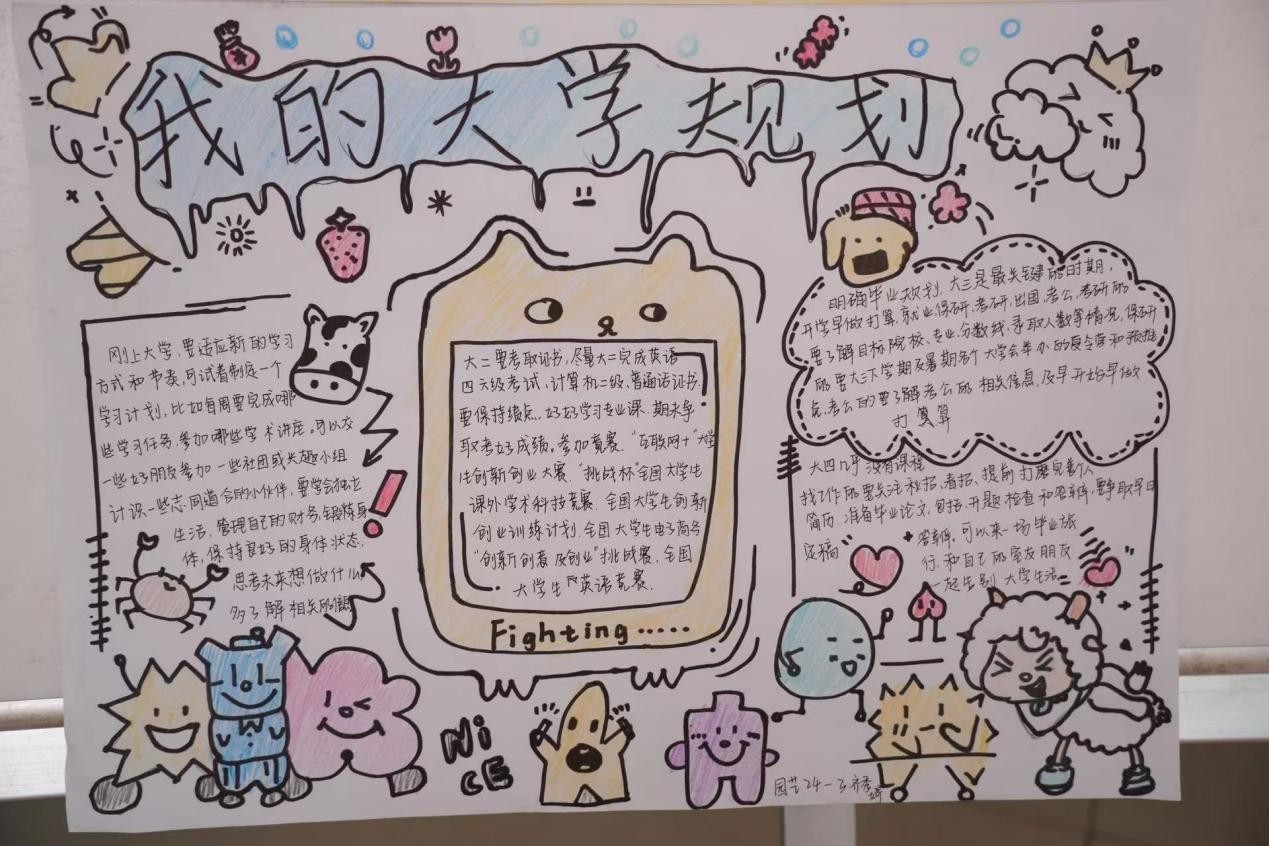 我的大学规划
刚上大学,要适应新的学习
方式和节奏,可试着制定一个
学习计划,比如每周要完成哪
些学习任务,参加哪些学术讲座。可以交
一些好朋友参加一些社团或兴趣小组
计识一些志同道合的小伙伴,要学会独立
生活,管理自己的财务,锻炼身
体,保持良好的身体状态.
思考未来想做什么
多了解相关的
大二要考取证书,尽量大二完成英语
四六级考试、计算机二级、普通话证书.
要保持绩点,好好学习专业课.期末争
取考好成绩。参加竞赛."互联网+"大学
生创新创业大赛."挑战杯"全国大学生
课外学术科技竞赛.全国大学生创新
创业训练计划.全国大学生电子商务
"创新创意及创业"挑战赛.全国
大学生英语竞赛.
Fighting.....
明确毕业规划,大三是最关键的时期,
开学早做打算,就业、保研、考研、出国、考公.考研的
要了解目标院校、专业、分数线、录取人数等情况,保研
的要大三下学期及暑期各个大学会举办的夏令营和预推
免.考公的要了解考公的相关信息,及早开始早做
打算
大四几乎没有课程
找工作的要关注秋招、春招、提前打磨完善个人
简历.准备毕业论文,包括.开题检查和答辩,要争取早日
定稿 答辩.可以来一场毕业旅
行,和自己的室友朋友
一起告别大学生活
NiCE
园艺24-3齐秀